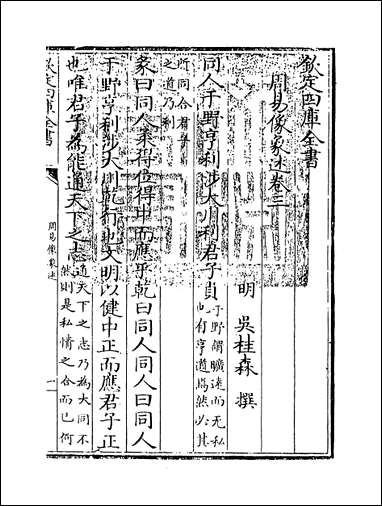 欽定四庫全書
周易像象述卷三
明 吳桂森 撰
同人于野亨利涉大川利君子貞于野謂曠遠而无私也有亨道焉然必其
所同合君子之道乃利
彖曰同人柔得位得中而應乎乾曰同人同人曰同人
于野亨利涉大川乾行也文明以健中正而應君子正
也唯君子為能通天下之志通天下之志乃為大同不然則是私情之合而已何
欽定四庫全書
周易像象述
一